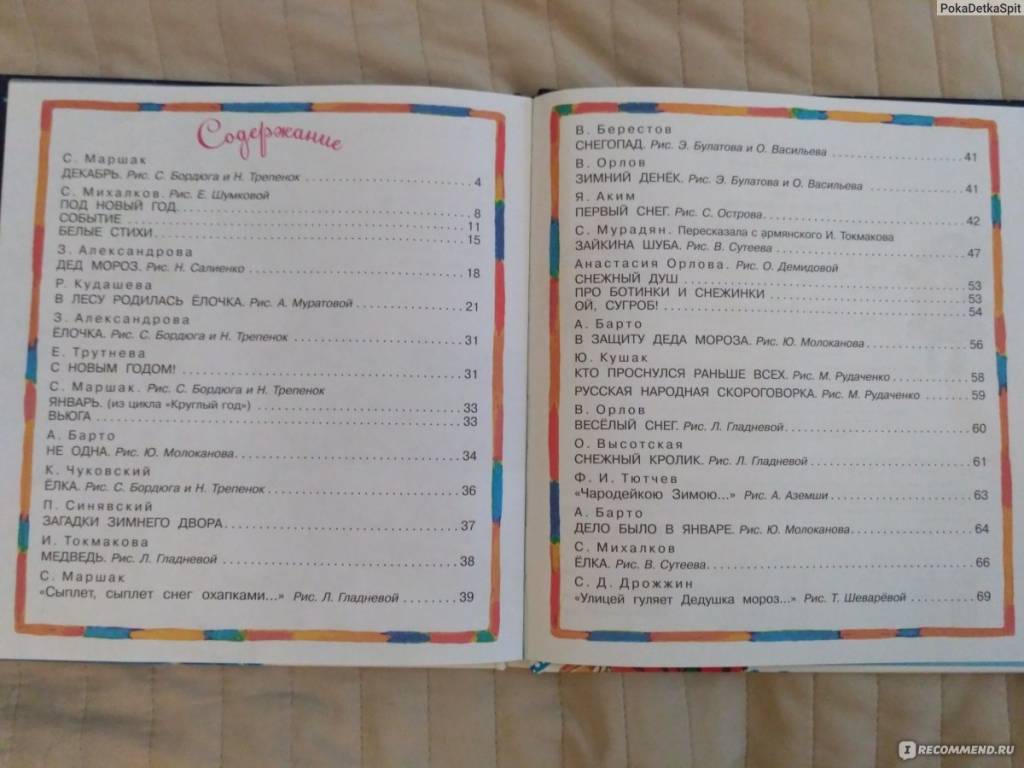 PokaDetkaSpit
Содержание
С. Маршак
ДЕКАБРЬ. Рис. С. Бордюга и Н. Трепенок 4
С. Михалков. Рис. Е. Шумковой
ПОД НОВЫЙ ГОД 8
СОБЫТИЕ 11
БЕЛЫЕ СТИХИ 15
З. Александрова
ДЕД МОРОЗ. Рис. Н. Салиенко 18
Р. Кудашева
В ЛЕСУ РОДИЛАСЬ ЁЛОЧКА. Рис. А. Муратовой 21
З. Александрова
ЁЛОЧКА. Рис. С. Бордюга и Н. Трепенок 31
Е. Трутнева
С НОВЫМ ГОДОМ! 31
С. Маршак. Рис. С. Бордюга и Н. Трепенок
ЯНВАРЬ. (из цикла «Круглый год») 33
ВЬЮГА 33
А. Барто
НЕ ОДНА. Рис. Ю. Молоканова 34
К. Чуковский
ЁЛКА. Рис. С. Бордюга и Н. Трепенок 36
П. Синявский
ЗАГАДКИ ЗИМНЕГО ДВОРА 37
И. Токмакова
МЕДВЕДЬ. Рис. Л. Гладневой 38
С. Маршак
«Сыплет, сыплет снег охапками...» Рис. Л. Гладневой 39
В. Берестов
СНЕГОПАД. Рис. Э. Булатова и О. Васильева 41
В. Орлов
ЗИМНИЙ ДЕНЁК. Рис. Э. Булатова и О. Васильева 41
Я. Аким
ПЕРВЫЙ СНЕГ. Рис. С. Острова 42
С. Мурадян. Пересказала с армянского И. Токмакова
ЗАЙКИНА ШУБА. Рис. В. Сутеева 47
Анастасия Орлова. Рис. О. Демидовой
СНЕЖНЫЙ ДУШ 53
ПРО БОТИНКИ И СНЕЖИНКИ 53
ОЙ, СУГРОБ! 54
А. Барто
В ЗАЩИТУ ДЕДА МОРОЗА. Рис. Ю. Молоканова 56
Ю. Кушак
КТО ПРОСНУЛСЯ РАНЬШЕ ВСЕХ. Рис. М. Рудаченко 58
РУССКАЯ НАРОДНАЯ СКОРОГОВОРКА. Рис. М. Рудаченко 59
В. Орлов
ВЕСЁЛЫЙ СНЕГ. Рис. Л. Гладневой 60
О. Высотская
СНЕЖНЫЙ КРОЛИК. Рис. Л. Гладневой 61
Ф. И. Тютчев
«Чародейкою Зимою...» Рис. А. Аземши 63
А. Барто
ДЕЛО БЫЛО В ЯНВАРЕ. Рис. Ю. Молоканова 64
С. Михалков
ЁЛКА. Рис. В. Сутеева 66
С. Д. Дрожжин
«Улицей гуляет Дедушка мороз...» Рис. Т. Шеварёвой 69
IRECOMMEND.RU